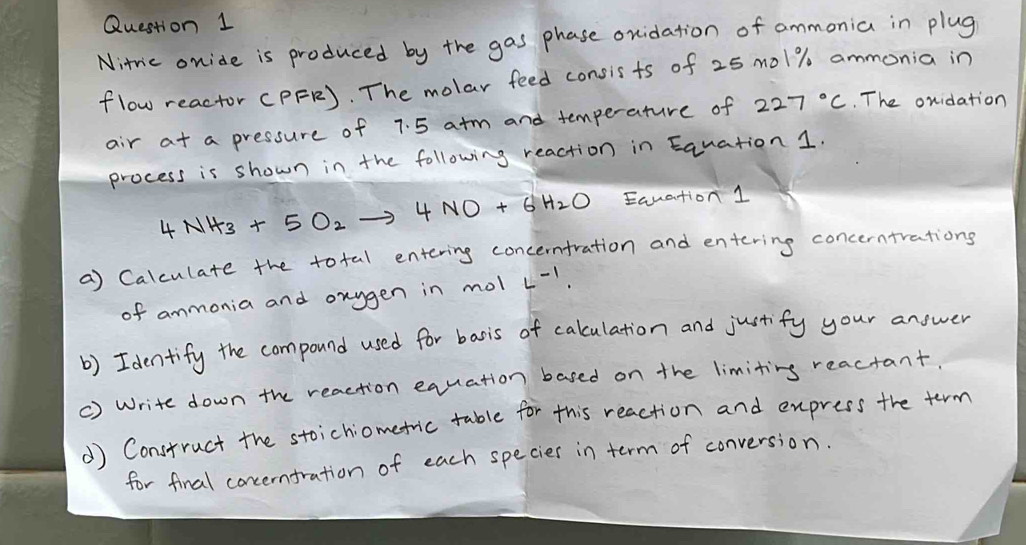 Question 1
Nitric oxide is produced by the gas phase oxidation of ammonia in plug
flow reactor (PFR). The molar feed consists of 25 mol% ammonia in
air at a pressure of 7.5 atm and temperature of 227 °C. The oxidation
process is shown in the following reaction in Equation 1.
4 NH3 + 5 O2 → 4 NO + 6 H2O Equation 1
a) Calculate the total entering concerntration and entering concerntrations
of ammonia and oxygen in mol L⁻¹.
b) Identify the compound used for basis of calculation and justify your answer
c) Write down the reaction equation based on the limiting reactant.
d) Construct the stoichiometric table for this reaction and express the term
for final concerntration of each species in term of conversion.